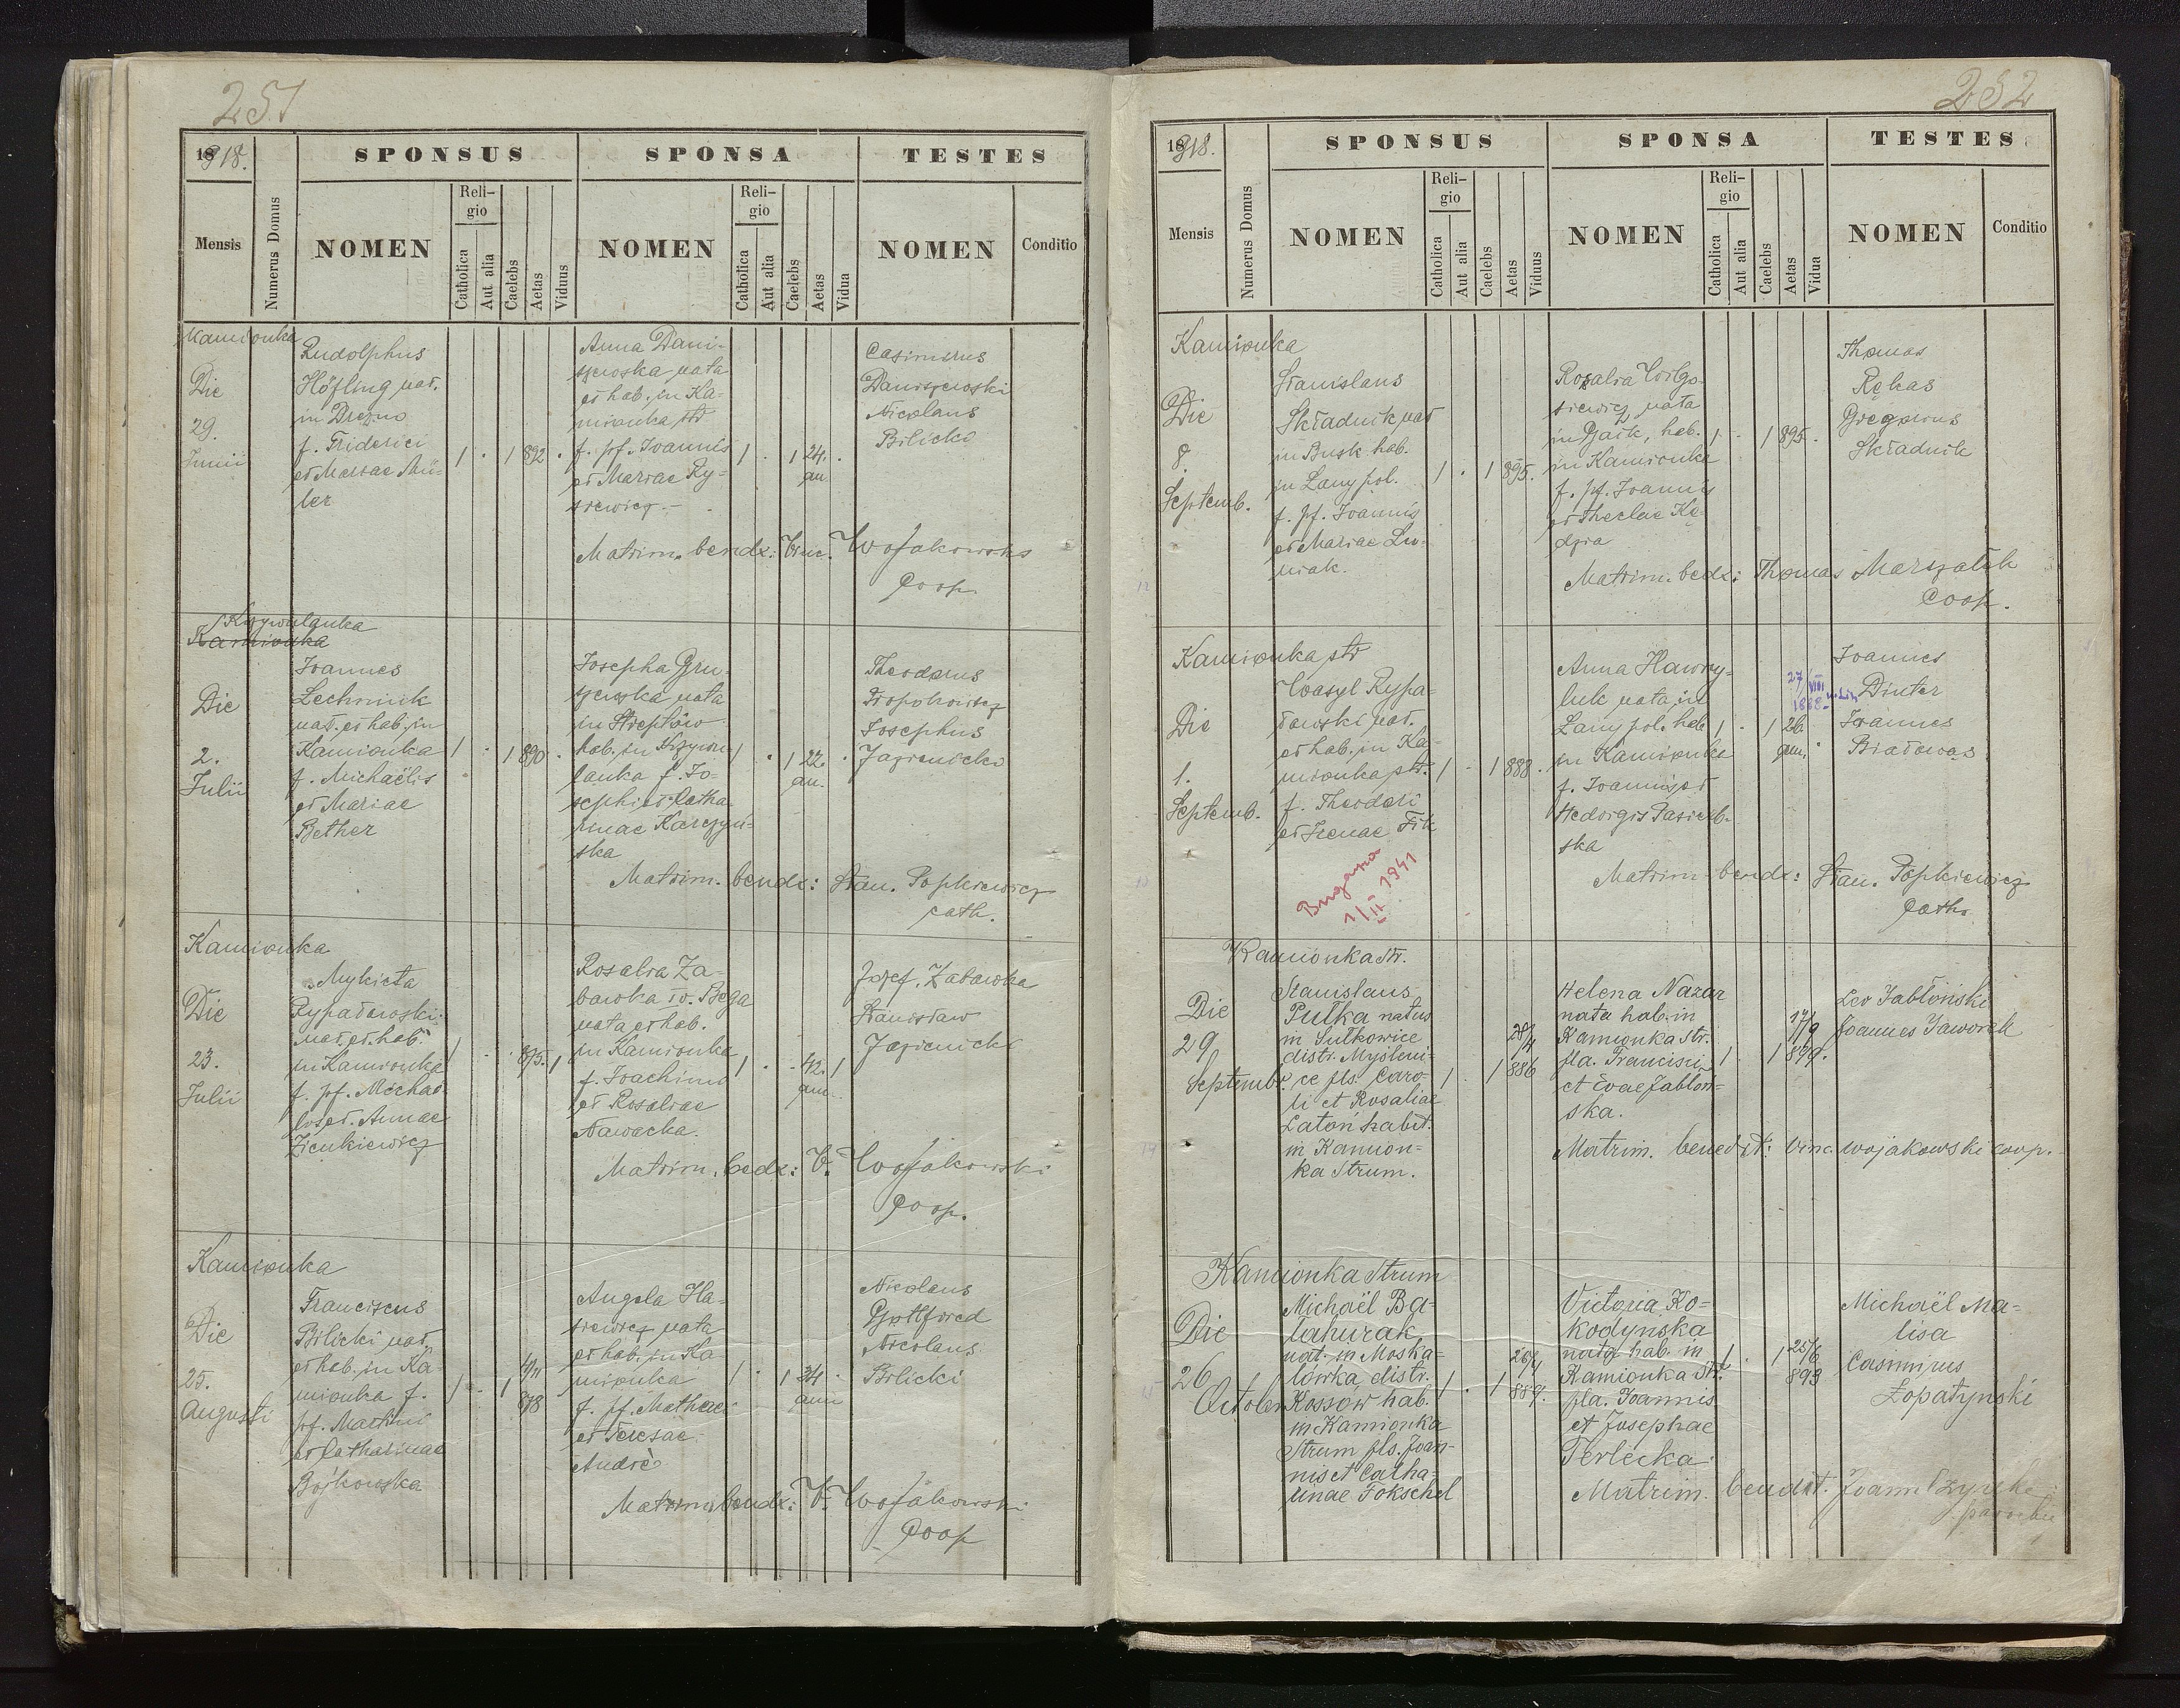 251
18918.
SPONSUS
SPONSA
TESTES
Mensis
Numerus Domus
NOMEN
Religio
Catholica
Aut alia
Caelebs
Aetas
Viduus
NOMEN
Religio
Catholica
Aut alia
Caelebs
Aetas
Vidua
NOMEN
Conditio
Kamionka
Die
29.
Junii
Rudolphus
Höfling nat.
in Drezno
f. Friderici
et Mariae Mü-
ler
1 . 1 892 .
Anna Dani-
szewska nata
et hab. in Ka-
mionka str
f. pf. Joannis
et Mariae Ry-
siewicz.-
1 . 1 24. .
an.
Casimirus
Daniszewski
Nicolaus
Bilicki
Matrim. bendx: Vinc. Wojakowski
Coop.
Krzywulanka
Kamionka
Die
2.
Julii
Joannes
Lechnick
nat. et hab. in
Kamionka
f. Michaëlis
et Mariae
Bether
1 . 1 890 .
Josepha Gru-
szewska nata
in Streptów
hab. in Krzywu-
lanka f. Jo-
sephi et Catha
rinae Karczyń-
ska
1 . 1 22. .
an.
Theodorus
Josephus
Jazienicki
Matrim. bendx: Stan. Popkiewicz
cath.
Kamionka
Die
23.
Julii
Mykieta
Rypadowski
nat. et hab.
in Kamionka
f. pf. Michae
lis et Annae
Zienkiewicz
1 . . 875. 1
Rosalia Za-
bawka 1v. Bega
nata et hab.
in Kamionka
f. Joachimi
et Rosaliae
Nawacka.
1 . . 42. 1
an.
Józef Zabawka
Stanisław
Jazienicki
Matrim. bedx: V. Wojakowski
Coop.
Kamionka
Die
25.
Augusti
Franciscus
Bilicki nat.
et hab. in Ka-
mionka f.
pf. Martini
et Catharinae
Bojkowska
1 . 1 4/11
878
Angela Ha-
siewicz nata
et hab. in Ka
mionka
f. pf. Mathaei
et Teresae
Andrè
1 . 1 34 .
ann
Nicolaus
Gottfried
Nicolaus
Bilicki
Matrim bendx: V. Wojakowski
Coop
252
18918.
SPONSUS
SPONSA
TESTES
Mensis
Numerus Domus
NOMEN
Religio
Catholica
Aut alia
Caelebs
Aetas
Viduus
NOMEN
Religio
Catholica
Aut alia
Caelebs
Aetas
Vidua
NOMEN
Conditio
Kamionka
Die
8.
Septemb.
Stanislaus
Składnik nat
in Busk hab.
in Łany pol.
f. pf. Joannis
et Mariae Lew-
niak.
1 . 1 895.
Rozalia Wilgo-
siewicz nata
in Gaik, hab.
in Kamionka
f. pf. Joannis
et Theclae Kę
dzia
1 . 1 895 .
Thomas
Rękas
Gregorius
Składnik
Matrim. bedx: Thomas Marszałek
Coop.
Kamionka str
Die
1.
Septemb.
Wasyl Rypa-
dowski nat.
et hab. in Ka-
mionka str.
f. Theodori
et Irenae Fik
1 . 1 888 .
Anna Hawry-
luk nata in
Łany pol. hab
in Kamionka
f. Joannis et
Hedvigis Pasierb-
ska
1 . 1 26. .
ann.
27/VIII
1888
Joannes
Dinter
Joannes
Białowas
Matrim bendx: Stan. Popkiewicz
Cath.
1/II 1941
Kamionka str.
Die
29
Septembr.
Stanislaus
Pułka natus
in Sułkowice
distr. Myśleni-
ce fls. Caro-
li et Rosaliae
Latoń habit.
in Kamion-
ka Strum.
1 . 1 28/4
886
Helena Nazar
nata hab. in
Kamionka str.
fla. Francisci
et Evae Jabłoń-
ska.
1 . 1 17/9
899.
Leo Jabłoński
Joannes Jaworek
Matrim. benedxt: Vinc. Wojakowski coop.
Kamionka Strum
Die
26
Octobr.
Michaël Ba-
łahurak
nat. in Moska-
lówka distr.
Kossów hab.
in Kamionka
Strum fls. Joan-
nis et Catha-
rinae Tokschel
1 . 1 26/4
887.
Victoria Ko-
kodyńska
nata hab. in
Kamionka Str.
fla. Joannis
et Josephae
Terlecka.
1 . 1 25/6
893
Michaël Ma-
lisa
Casimirus
Łopatyński
Matrim. bendxt. Joann